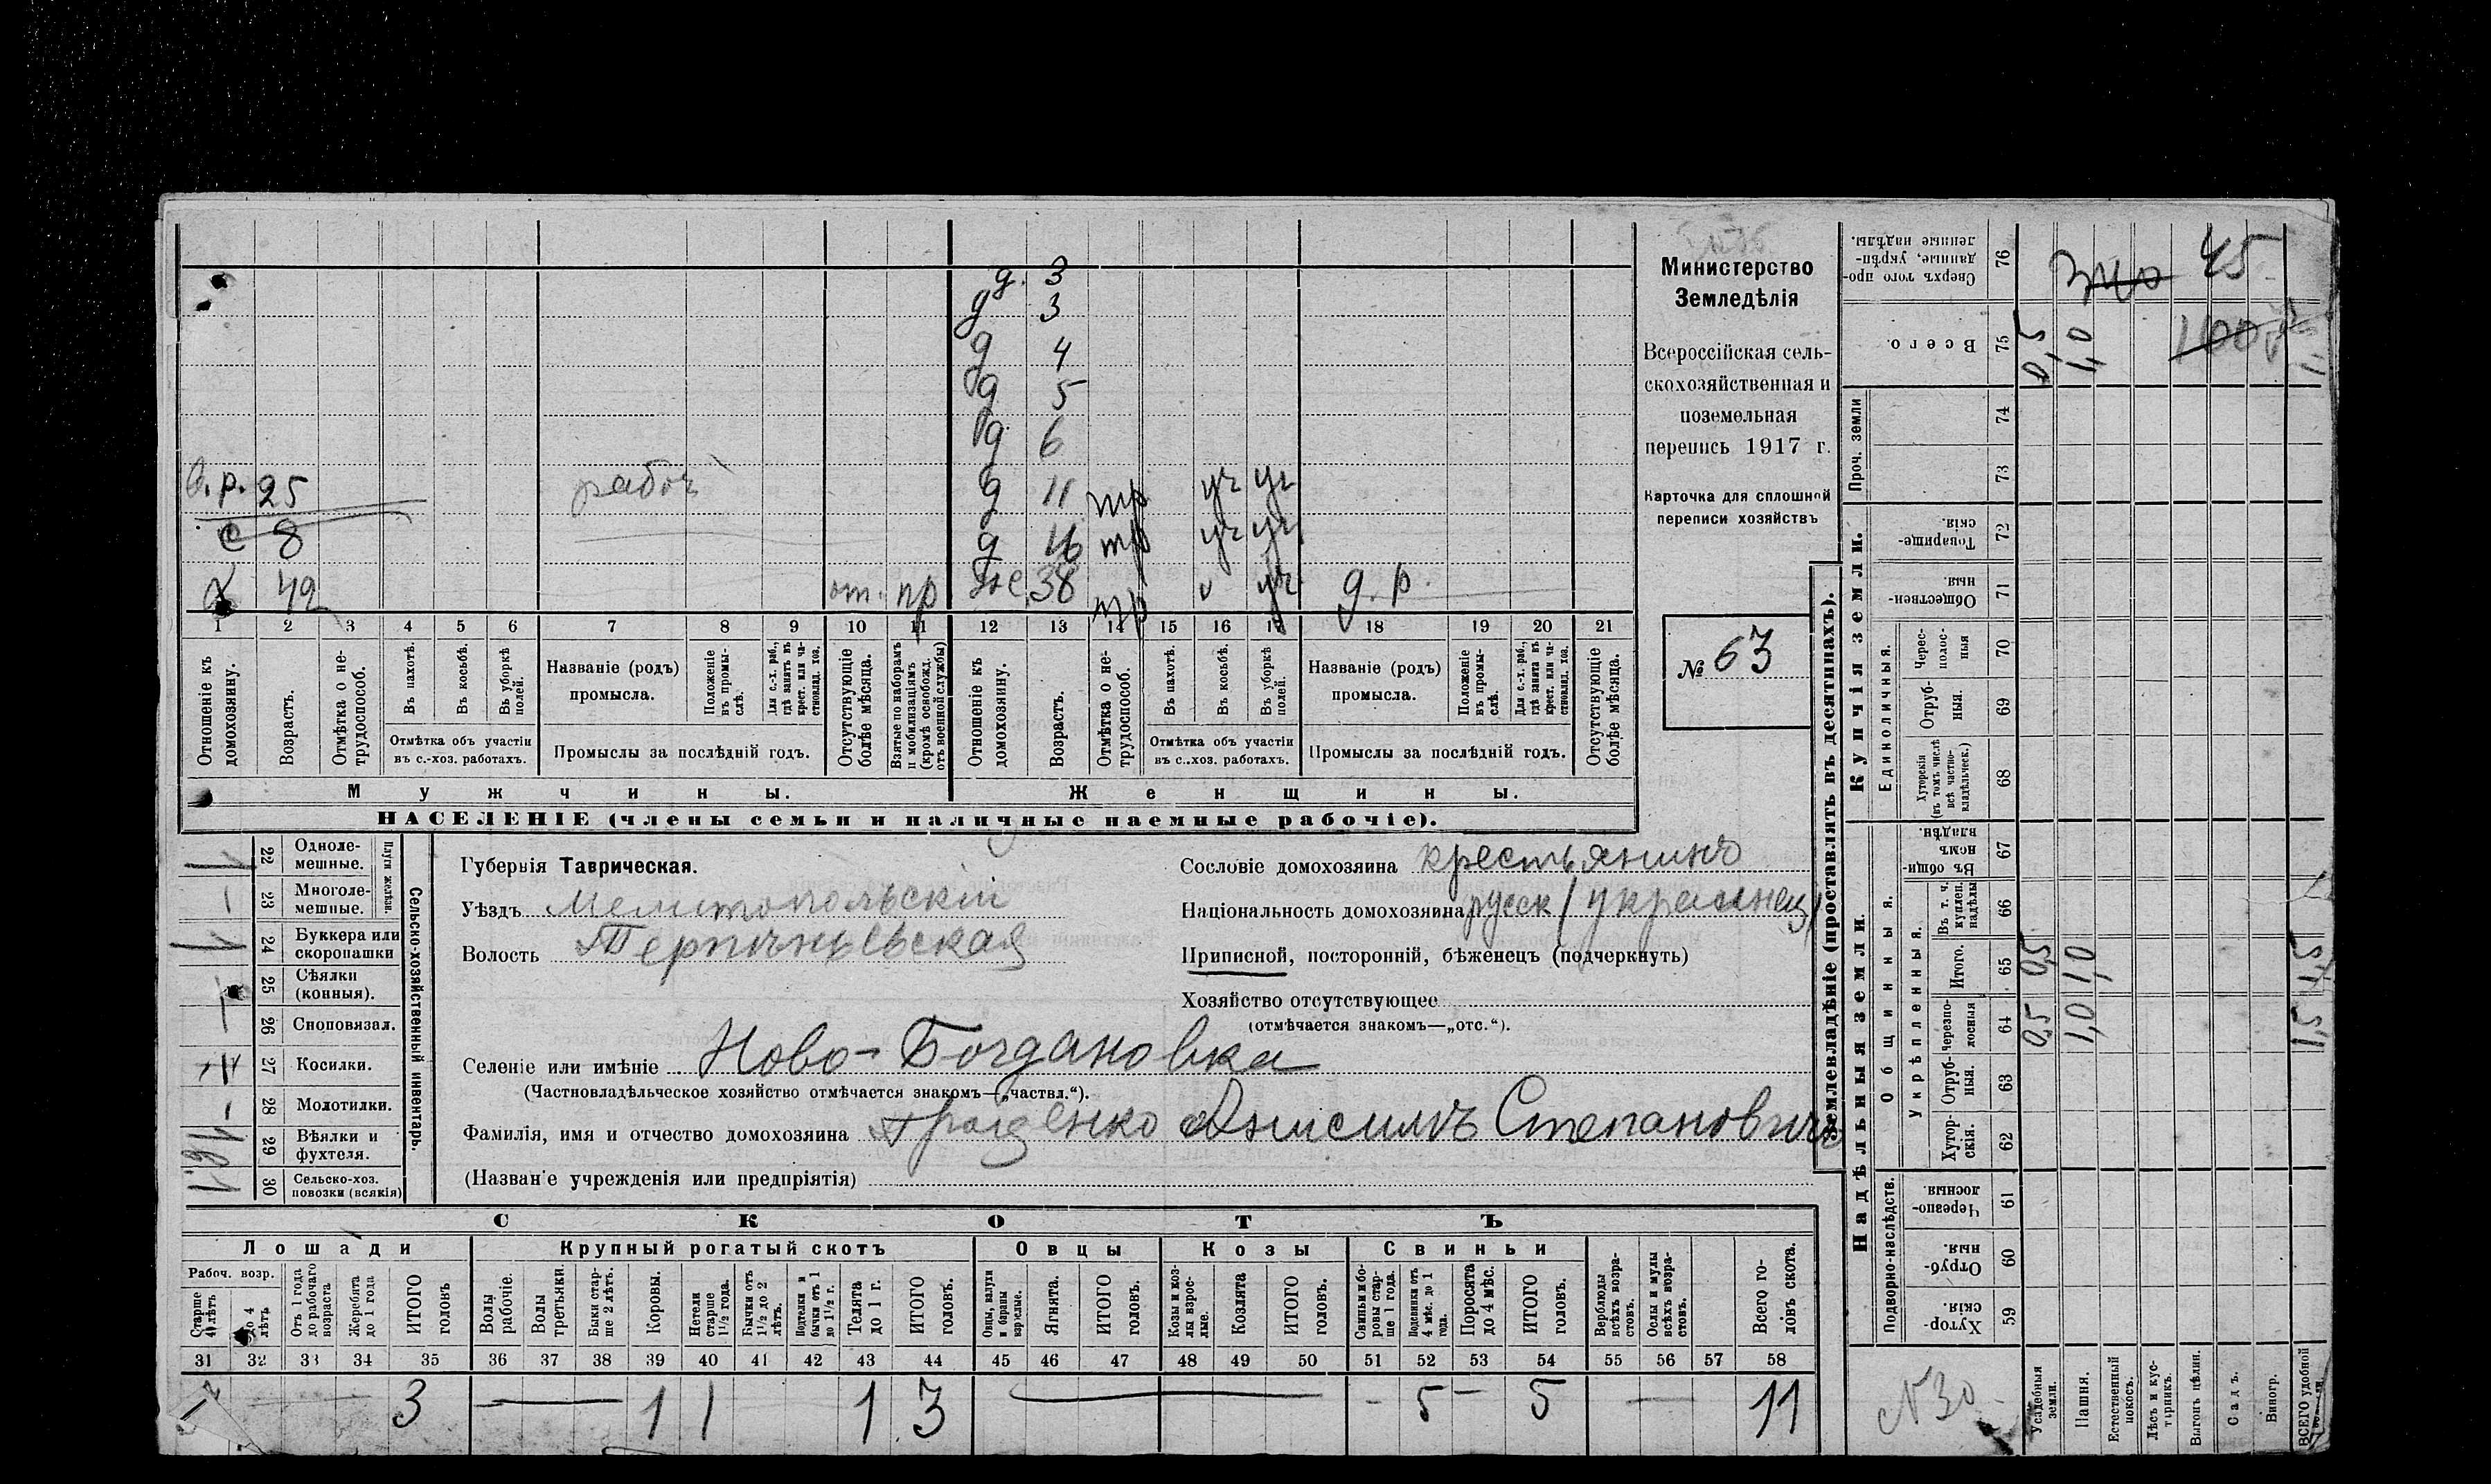 д. 3
д 3
д 4
д 5
д 6
в. р. 25 рабоч д 11 нтр уч уч
с 8 д 16 нтр уч уч
х 42 от. пр же 38 нтр v уч д. р.
1 2 3 4 5 6 7 8 9 10 11 12 13 14 15 16 17 18 19 20 21
Отношеніе къ домохозяину.
Возрастъ.
Отмѣтка о нетрудоспособ.
Въ пахотѣ.
Въ косьбѣ.
Въ уборкѣ полей.
Отмѣтка объ участіи
въ с.-хоз. работахъ.
Названіе (родъ)
промысла.
Положеніе въ промыслѣ.
Для с.-х. раб., гдѣ занятъ въ крест. или частновлад. хоз.
Промыслы за послѣдній годъ.
Отсутствующіе болѣе мѣсяца.
Взятые по наборамъ и мобилизаціямъ (кромѣ освобожд. отъ военной службы)
Отношеніе къ домохозяину.
Возрастъ.
Отмѣтка о нетрудоспособ.
Въ пахотѣ.
Въ косьбѣ.
Въ уборкѣ полей.
Отмѣтка объ участіи
въ с.-хоз. работахъ.
Названіе (родъ)
промысла.
Положеніе въ промыслѣ.
Для с.-х. раб., гдѣ занята въ крест. или частновлад. хоз.
Промыслы за послѣдній годъ.
Отсутствующіе болѣе мѣсяца.
Мужчины. Женщины.
НАСЕЛЕНІЕ (члены семьи и наличные наемные рабочіе).
Министерство
Земледѣлія
Всероссійская сель-
скохозяйственная и
поземельная
перепись 1917 г.
Карточка для сплошной
переписи хозяйствъ
№ 63
22 Одноле-
мешные.
23 Многоле-
мешные.
Плуги желѣзн.
24 Буккера или
скоропашки
25 Сѣялки
(конныя).
26 Сноповязал.
27 Косилки.
28 Молотилки.
29 Вѣялки и
фухтеля.
30 Сельско-хоз.
повозки (всякія)
Сельско-хозяйственный инвентарь.
Губернія Таврическая.
Уѣздъ Мелитопольскій
Волость Терпѣньевская
Сословіе домохозяина крестьянинъ
Національность домохозяина русск / украинец /
Приписной, посторонній, бѣженецъ (подчеркнуть)
Хозяйство отсутствующее
(отмѣчается знакомъ—„отс.“).
Селеніе или имѣніе Ново-Богдановка
(Частновладѣльческое хозяйство отмѣчается знакомъ—„частвл.“).
Фамилія, имя и отчество домохозяина Анисимъ Степановичъ
(Названіе учрежденія или предпріятія)
СКОТЪ
Лошади Крупный рогатый скотъ Овцы Козы Свиньи
Рабоч. возр.
Старше 4 лѣтъ
До 4 лѣтъ
Отъ 1 года до рабочаго возраста
Жеребята до 1 года
ИТОГО головъ
Волы рабочіе.
Волы третьяки.
Быки старше 2 лѣтъ.
Коровы.
Нетели старше 1½ года.
Бычки отъ 1½ до 2 лѣтъ.
Подтелки и бычки отъ 1 до 1½ г.
Телята до 1 г.
ИТОГО головъ.
Овцы, валухи и бараны взрослые.
Ягнята.
ИТОГО головъ.
Козы и козлы взрослые.
Козлята
ИТОГО головъ.
Свиньи и боровы старше 1 года.
Подсвинки отъ 4 мѣс. до 1 года.
Поросята до 4 мѣс.
ИТОГО головъ.
Верблюды всѣхъ возрастовъ.
Ослы и мулы всѣхъ возрастовъ.
Всего головъ скота.
31 32 33 34 35 36 37 38 39 40 41 42 43 44 45 46 47 48 49 50 51 52 53 54 55 56 57 58
3 — 1 1 1 3 — - 5 - 5 — 11
Землевладѣніе (проставлять въ десятинахъ).
Купчія земли.
Надѣльныя земли.
Сверхъ того проданные, укрѣпленные надѣлы. 76
45
Всего. 75 0,5 1,0
1100
Проч. земли 74 73
Товарищескія. 72
Общественныя. 71
Единоличныя.
Чересполосныя 70
Отрубныя. 69
Хуторскія (въ томъ числѣ всѣ частновладѣльческ.) 68
Общинныя.
Въ общинномъ владѣн. 67
Укрѣпленныя.
Въ т. ч. куплен. надѣлы 66
Итого. 65 0,5 1,0 1,5
Черезполосныя 64 0,5 1,0 1,5
Отрубныя. 63
Хуторскія. 62
Подворно-наслѣдств.
Черезполосныя. 61
Отрубныя. 60
Хуторскія. 59
N 30
Усадебныя земли.
Пашня.
Естественный покосъ.
Лѣсъ и кустарникъ.
Выгонъ цѣлин.
Садъ.
Виногр.
ВСЕГО удобной